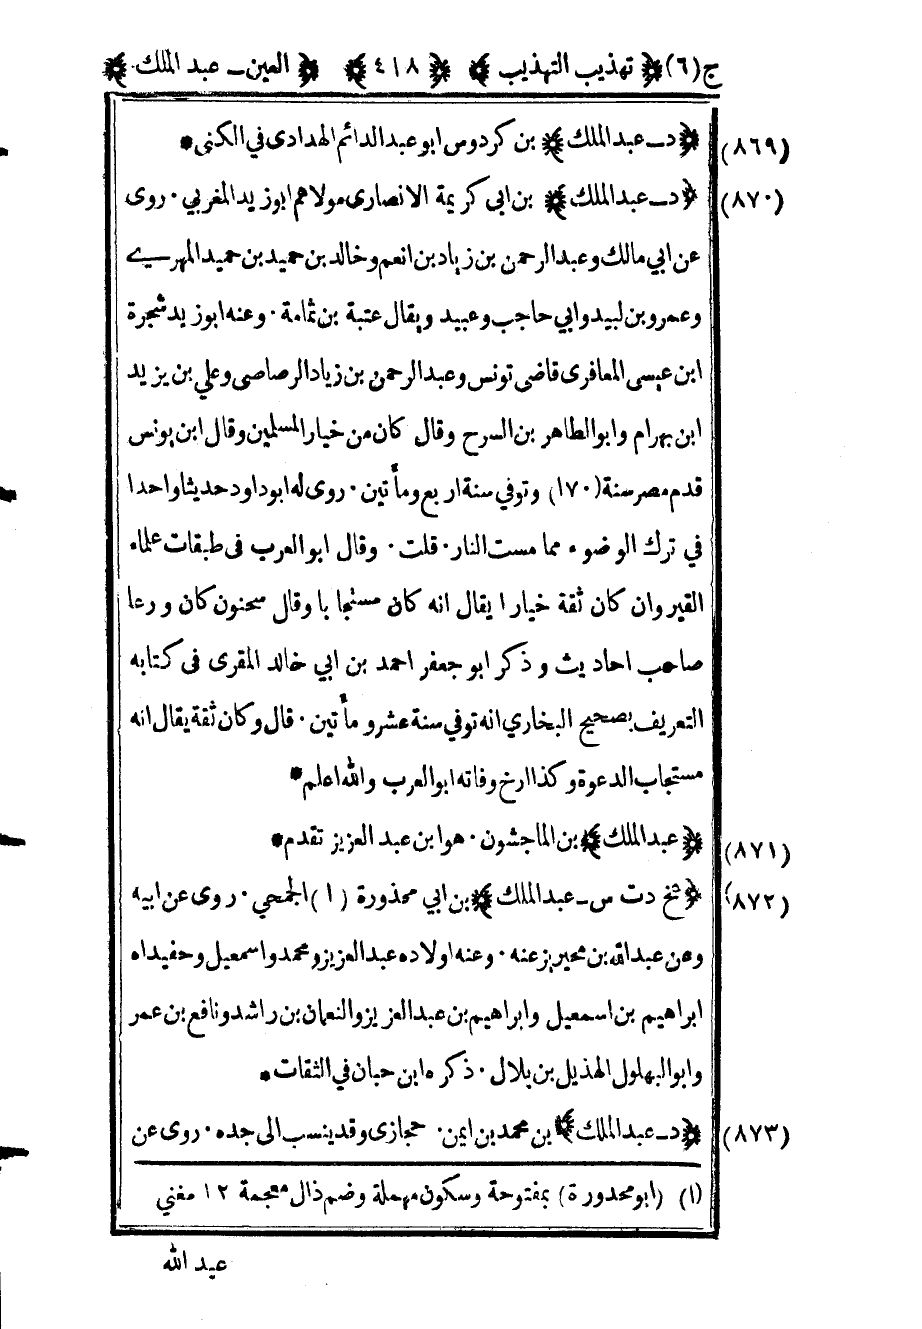 ج(٦) ﴿ تهذيب التهذيب ﴾ ﴿ ٤١٨ ﴾ ﴿ العين ـ عبد الملك ﴾
(٨٦٩) ﴿ د ـ عبد الملك ﴾ بن كردوس ابو عبد الدائم الهدادى في الكنى *
(٨٧٠) ﴿ د ـ عبد الملك ﴾ بن ابي كريمة الانصارى مولاهم ابو زيد المغربي . روى
عن ابي مالك وعبد الرحمن بن زياد بن انعم وخالد بن حميد بن حميد المهري
وعمرو بن لبيد وابي حاجب وعبيد ويقال عتبة بن ثمامة . وعنه ابو زيد شجرة
ابن عيسى المعافرى قاضى تونس وعبد الرحمن بن زياد الرصاصى وعلي بن يزيد
ابن بهرام وابو الطاهر بن السرح وقال كان من خيار المسلمين وقال ابن يونس
قدم مصر سنة (١٧٠) وتوفي سنة اربع ومأتين . روى له ابو داود حديثا واحدا
في ترك الوضوء مما مست النار . قلت . وقال ابو العرب فى طبقات علماء
القيروان كان ثقة خيارا يقال انه كان مستجابا وقال سحنون كان ورعا
صاحب احاديث وذكر ابو جعفر احمد بن ابي خالد المقرى فى كتابه
التعريف بصحيح البخاري انه توفي سنة عشر ومأتين . قال وكان ثقة يقال انه
مستجاب الدعوة وكذا ارخ وفاته ابو العرب والله اعلم *
(٨٧١) ﴿ عبد الملك ﴾ بن الماجشون . هو ابن عبد العزيز تقدم *
(٨٧٢) ﴿ عخ د ت س ـ عبد الملك ﴾ بن ابي محذورة (١) الجمحي . روى عن ابيه
وعن عبد الله بن محيريز عنه . وعنه اولاده عبد العزيز ومحمد واسمعيل وحفيداه
ابراهيم بن اسمعيل وابراهيم بن عبد العزيز والنعمان بن راشد ونافع بن عمر
وابو البهلول الهذيل بن بلال . ذكره ابن حبان في الثقات *
(٨٧٣) ﴿ د ـ عبد الملك ﴾ بن محمد بن ايمن . حجازى وقد ينسب الى جده . روى عن
(١) (ابو محذورة) بمفتوحة وسكون مهملة وضم ذال معجمة ١٢ مغني
عبد الله